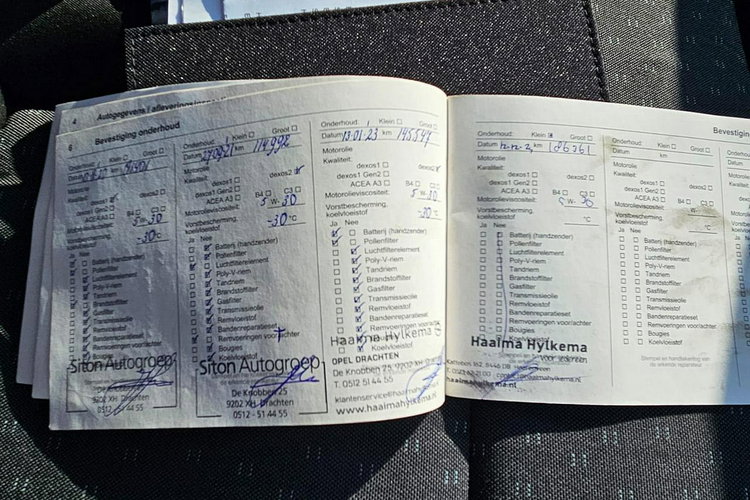 4 Autogegevens / afleveringsinspectie
6 Bevestiging onderhoud
Onderhoud: Klein Groot
km 91401
dexos2
dexos1 Gen2
ACEA A3 B4 C3
5 W- 30
Vorstbescherming
koelvloeistof
-30 °C
Ja Nee
Batterij (handzender)
Pollenfilter
Luchtfilterelement
Poly-V-riem
Tandriem
Brandstoffilter
Gasfilter
Transmissieolie
Remvloeistof
Bandenreparatieset
Remvoeringen voor/achter
Bougies
Koelvloeistof
Siton Autogroep
De Knobben 25
9202 XH Drachten
0512 - 51 44 55
Onderhoud: Klein Groot
Datum km 114992
Motorolie
Kwaliteit:
dexos2
dexos1 Gen2
ACEA A3 B4 C3
Motorolieviscositeit: 5 W- 30
Vorstbescherming
koelvloeistof
-30 °C
Ja Nee
Batterij (handzender)
Pollenfilter
Luchtfilterelement
Poly-V-riem
Tandriem
Brandstoffilter
Gasfilter
Transmissieolie
Remvloeistof
Bandenreparatieset
Remvoeringen voor/achter
Bougies
Koelvloeistof
Siton Autogroep
De Knobben 25
9202 XH Drachten
0512 - 51 44 55
Onderhoud: Klein Groot
Datum 13-01-23 km 145547
Motorolie
Kwaliteit:
dexos1 dexos2
dexos1 Gen2
ACEA A3 B4 C3
Motorolieviscositeit: 5 W- 30
Vorstbescherming
koelvloeistof
-30 °C
Ja Nee
Batterij (handzender)
Pollenfilter
Luchtfilterelement
Poly-V-riem
Tandriem
Brandstoffilter
Gasfilter
Transmissieolie
Remvloeistof
Bandenreparatieset
Remvoeringen voor/achter
Bougies
Koelvloeistof
Haaima Hylkema
OPEL DRACHTEN
De Knobben 25, 9202 XH
T. 0512 51 44 55
klantenservice@haaimahylkema.nl
www.haaimahylkema.nl
Bevestiging
Onderhoud: Klein Groot
Datum km 186761
Motorolie
Kwaliteit:
dexos1 dexos2
dexos1 Gen2
ACEA A3 B4 C3
Motorolieviscositeit: W- 30
Vorstbescherming
koelvloeistof
°C
Ja Nee
Batterij (handzender)
Pollenfilter
Luchtfilterelement
Poly-V-riem
Tandriem
Brandstoffilter
Gasfilter
Transmissieolie
Remvloeistof
Bandenreparatieset
Remvoeringen voor/achter
Bougies
Haaima Hylkema
Voor iedereen
contact@haaimahylkema.nl
www.haaimahylkema.nl
Onderhoud: Klein Groot
Datum km
Motorolie
Kwaliteit:
dexos1 dexos2
dexos1 Gen2
ACEA A3 B4 C3
Motorolieviscositeit: W-
Vorstbescherming
koelvloeistof
°C
Ja Nee
Batterij (handzender)
Pollenfilter
Luchtfilterelement
Poly-V-riem
Tandriem
Brandstoffilter
Gasfilter
Transmissieolie
Remvloeistof
Bandenreparatieset
Remvoeringen voor/achter
Bougies
Koelvloeistof
Stempel en handtekening van
de erkende reparateur